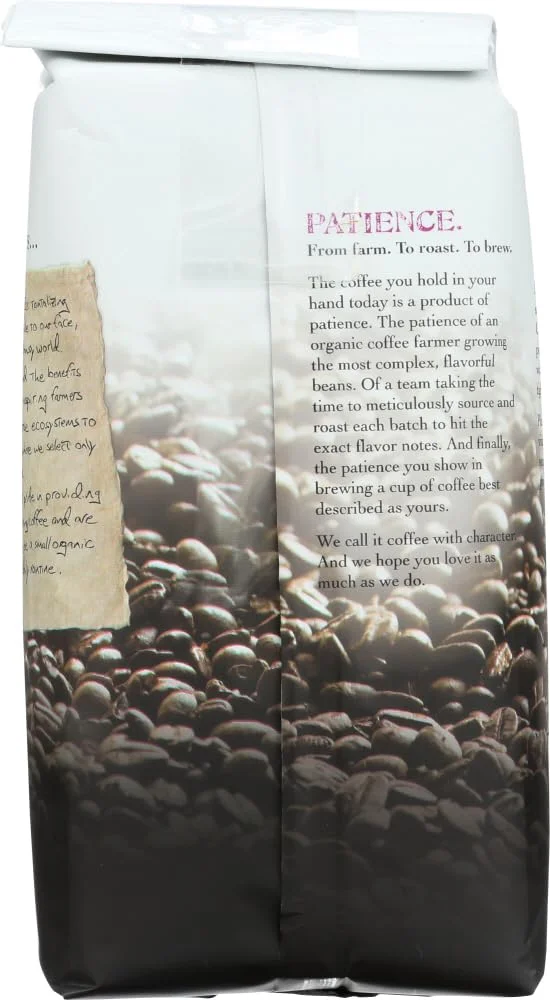 PATIENCE.
From farm. To roast. To brew.
The coffee you hold in your
hand today is a product of
patience. The patience of an
organic coffee farmer growing
the most complex, flavorful
beans. Of a team taking the
time to meticulously source and
roast each batch to hit the
exact flavor notes. And finally,
the patience you show in
brewing a cup of coffee best
described as yours.
We call it coffee with character.
And we hope you love it as
much as we do.
tantalizing
to our face,
world
the benefits
farmers
ecosystems to
we select only
when providing
coffee and are
a small organic
routine.